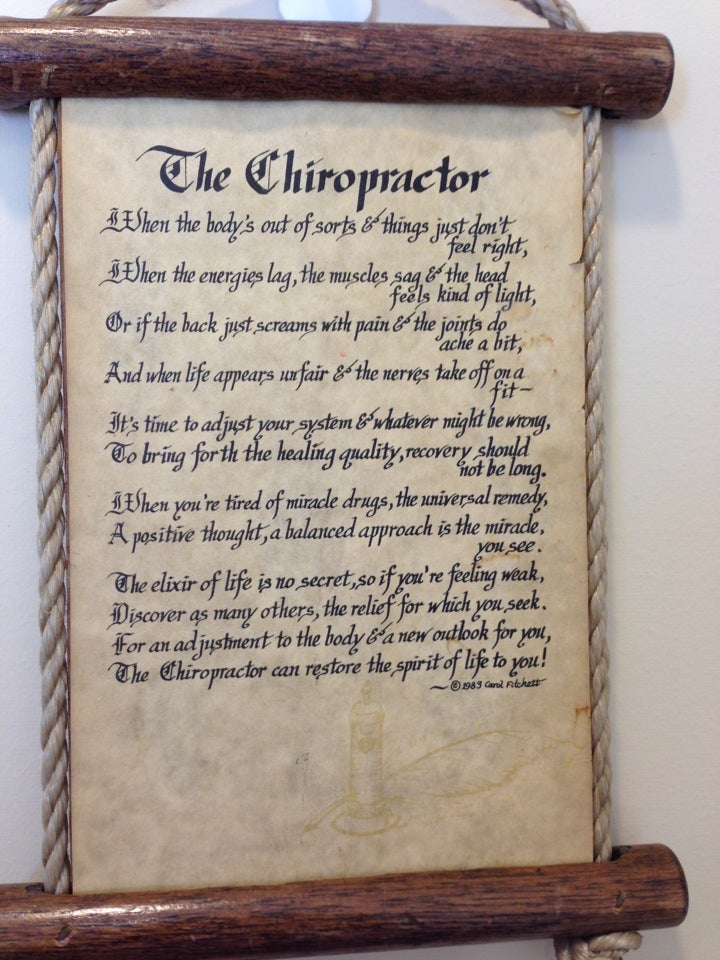 The Chiropractor
When the body's out of sorts & things just don't
feel right,
When the energies lag, the muscles sag & the head
feels kind of light,
Or if the back just screams with pain & the joints do
ache a bit,
And when life appears unfair & the nerves take off on a
fit~
It's time to adjust your system & whatever might be wrong,
To bring forth the healing quality, recovery should
not be long.
When you're tired of miracle drugs, the universal remedy,
A positive thought, a balanced approach is the miracle,
you see.
The elixir of life is no secret, so if you're feeling weak,
Discover as many others, the relief for which you seek.
For an adjustment to the body & a new outlook for you,
The Chiropractor can restore the spirit of life to you!
~ © 1983 Carol Fitchett